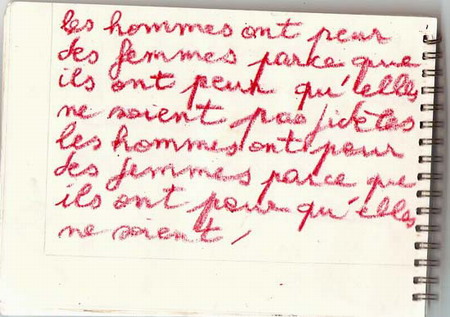 les hommes ont peur
des femmes parce que
ils ont peur qu'elles
ne soient pas fidèles
les hommes ont pour
des femmes parce que
ils ont pour qu'elles
ne soient /